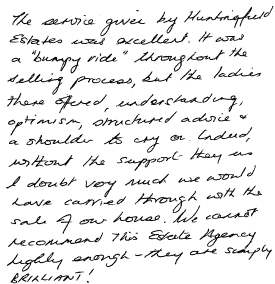 The service given by Huntingfield
Estates was excellent. It was
a "bumpy ride" throughout the
selling process, but the ladies
there offered, understanding,
optimism, structured advice &
a shoulder to cry on. Indeed,
without the support they
I doubt very much we would
have carried through with the
sale of our house. We cannot
recommend This Estate Agency
highly enough - they are simply
BRILLIANT!